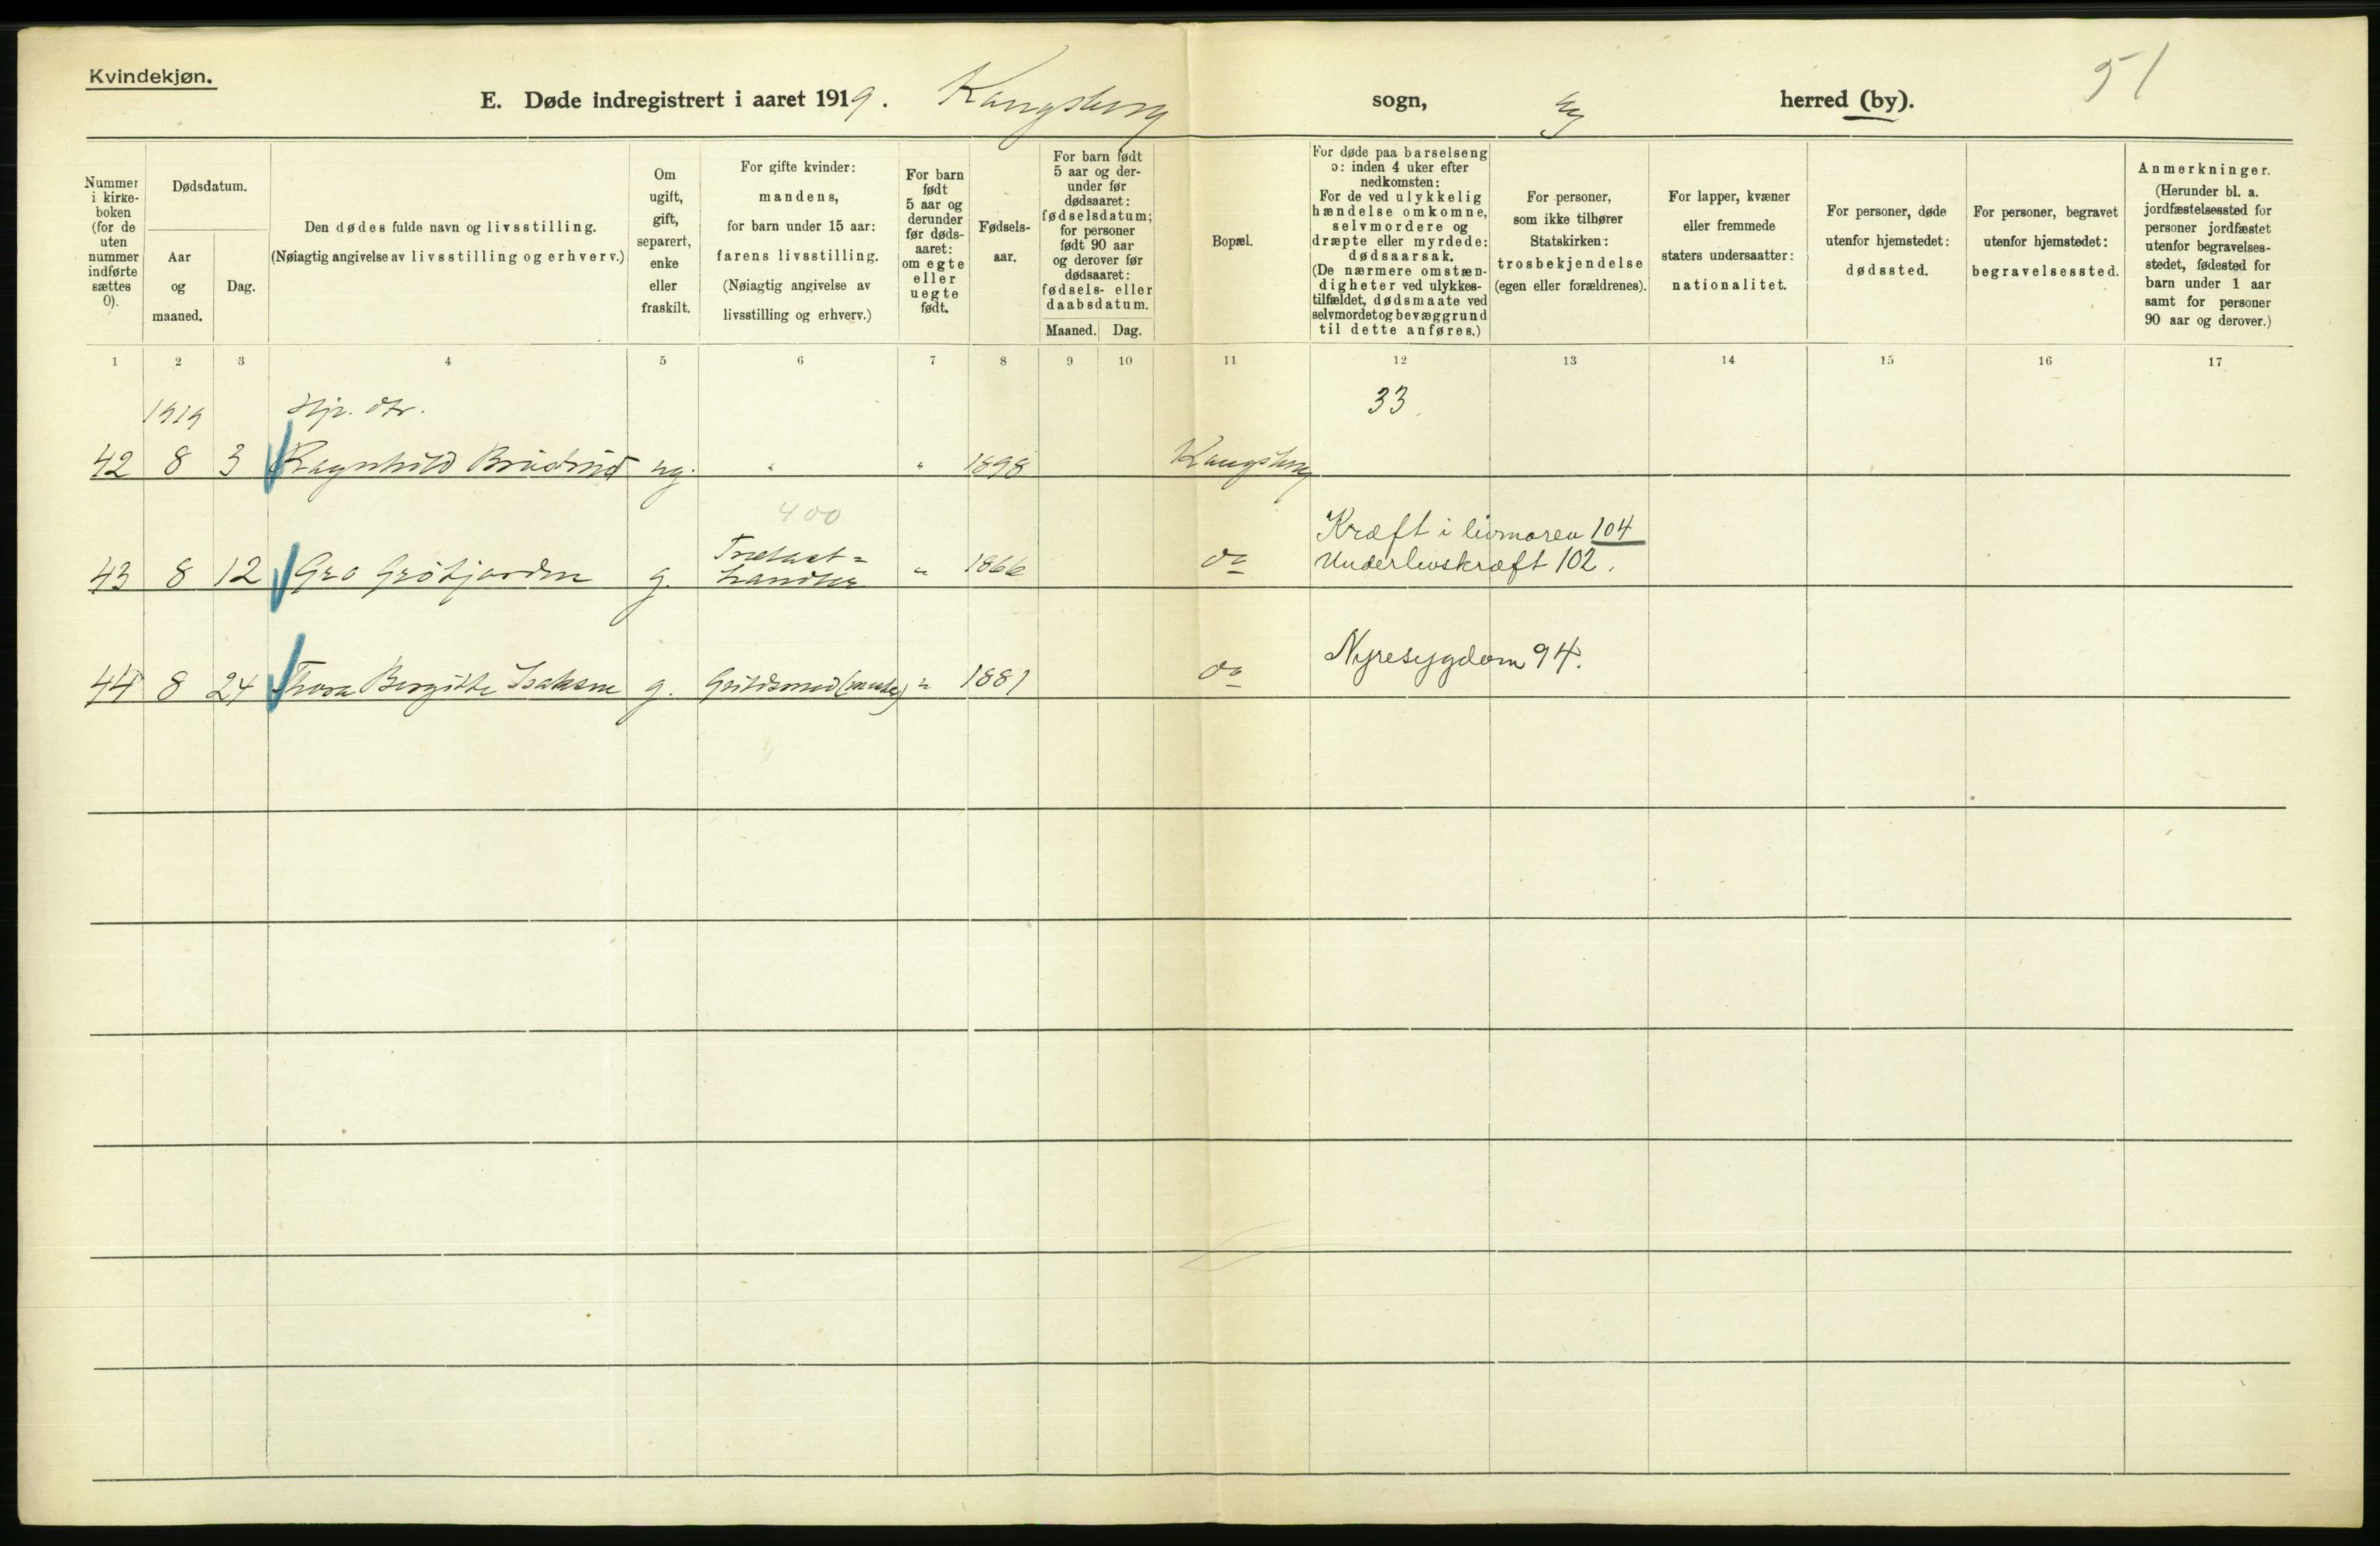 Kvindekjøn.
51
E. Døde indregistrert i aaret 1919. Kongsberg sogn, by herred (by).
Nummer i kirkeboken (for de uten nummer indførte sættes 0).
Dødsdatum.
Aar og maaned.
Dag.
Den dødes fulde navn og livsstilling.
(Nøiagtig angivelse av livsstilling og erhverv.)
Om ugift, gift, separert, enke eller fraskilt.
For gifte kvinder: mandens, for barn under 15 aar: farens livsstilling. (Nøiagtig angivelse av livsstilling og erhverv.)
For barn født 5 aar og derunder før dødsaaret: om egte eller uegte født.
Fødselsaar.
For barn født 5 aar og derunder før dødsaaret: fødselsdatum; for personer født 90 aar og derover før dødsaaret: fødsels- eller daabsdatum.
Maaned. Dag.
Bopæl.
For døde paa barselseng ɔ: inden 4 uker efter nedkomsten: For de ved ulykkelig hændelse omkomne, selvmordere og dræpte eller myrdede: dødsaarsak. (De nærmere omstændigheter ved ulykkestilfældet, dødsmaate ved selvmordet og bevæggrund til dette anføres.)
For personer, som ikke tilhører Statskirken: trosbekjendelse (egen eller forældrenes).
For lapper, kvæner eller fremmede staters undersaatter: nationalitet.
For personer, døde utenfor hjemstedet: dødssted.
For personer, begravet utenfor hjemstedet: begravelsessted.
Anmerkninger. (Herunder bl. a. jordfæstelsessted for personer jordfæstet utenfor begravelsesstedet, fødested for barn under 1 aar samt for personer 90 aar og derover.)
1 2 3 4 5 6 7 8 9 10 11 12 13 14 15 16 17
1919 33
42 8 3 Ragnhild ug. " " 1898 Kongsberg
400 Kræft i livmoren 104
43 8 12 Gro g. Trælasthandler " 1866 do Underlivskræft 102.
44 8 24 Thora Bergitte Isaksen g. " 1881 do Nyresygdom 94.